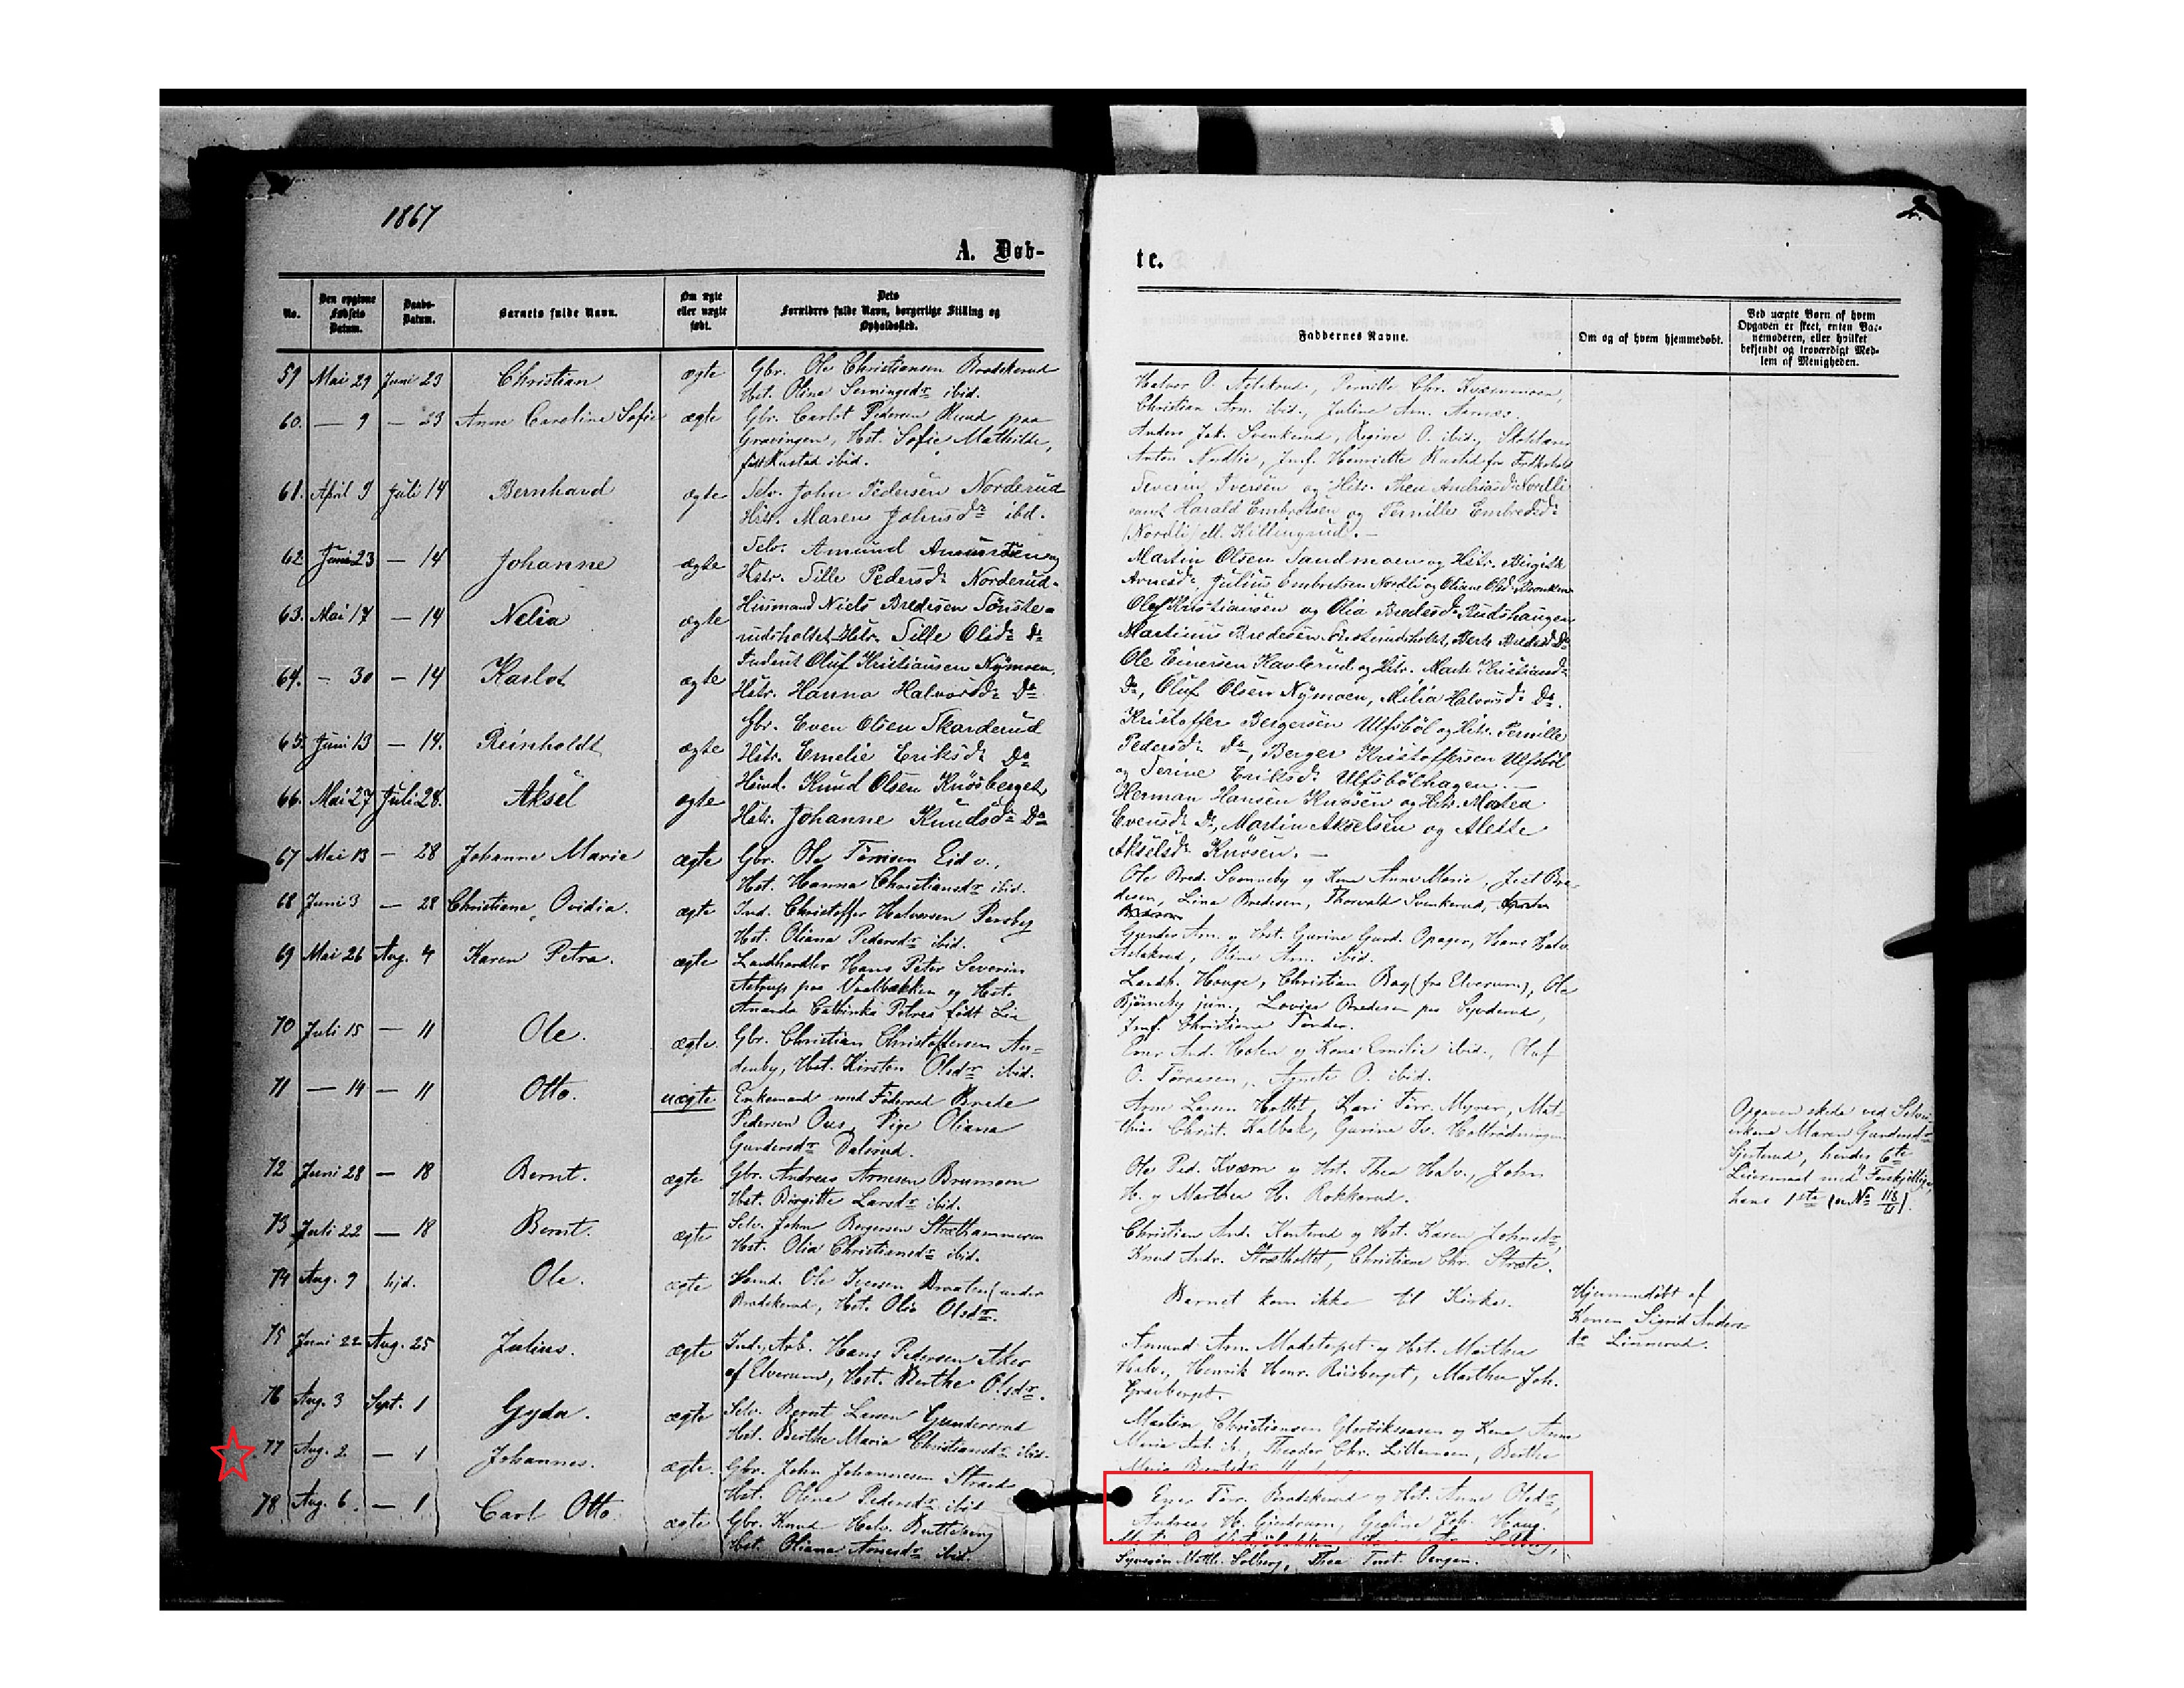 1867
A. Døb-
No.
Den opgivne
Fødsels
Datum.
Daabs-
Datum.
Barnets fulde Navn.
Om ægte
eller uægte
født.
Dets
Forældres fulde Navn, borgerlige Stilling og
Opholdssted.
59 Mai 29 Juni 23 Christian ægte Gbr. Ole Christiansen Brodskerud
Hst. Olina ibid.
60. — 9 — 23 Anne Caroline Sofie ægte Gbr. Carlot Pedersen Rund paa
Gravingen, Hst. Sofie Mathilde,
født Rustad ibid.
61. April 9 Juli 14 Bernhard ægte Selv. John Pedersen Norderud
Hstr. Maren Johnsdr ibd.
62. Juni 23 — 14 Johanne ægte Selv. Amund Amundsen og
Hstr. Sille Pedersdr Norderud.
63. Mai 17 — 14 Nelia ægte Husmand Niels Bredesen Tønste-
rudsholtet Hstr. Sille Olsdr Do
64. — 30 — 14 Karlot ægte Inderst Oluf Kristiansen Nymoen,
Hstr. Hanna Halvorsdr Do
65. Juni 13 — 14. Reinholdt ægte Gbr. Even Olsen Skarderud
Hstr. Emelie Eriksdr Do
66. Mai 27 Juli 28. Aksel ægte Husmd. Knud Olsen Knøsberget,
Hstr. Johanne Knudsdr Do
67 Mai 13 — 28 Johanne Marie ægte Gbr. Ole Tørrisen Eid v.,
Hst. Hanna Christiansdr ibid.
68 Juni 3 — 28 Christiane Ovidia. ægte Ind. Christoffer Halvorsen Persby
Hst. Oliana Pedersdr ibid.
69 Mai 26 Aug. 4 Karen Petra. ægte Landhandler Hans Peter Severin
Astrup paa Vaalbækken og Hst.
Amanda Cathinka Petrea født Lie
70 Juli 15 — 11 Ole. ægte. Gbr. Christian Christoffersen Au-
denby, Hst. Kirsten Olsdr ibid.
71 — 14 — 11 Otto. uægte Enkemand med Føderaad Brede
Pedersen Ous, Pige Oliana
Gundersdr Dalsrud.
72 Juni 28 — 18 Bernt. ægte Gbr. Andreas Arnesen Brumoen
Hst. Birgitte Larsdr ibid.
73 Juli 22 — 18 Bernt. ægte Selv. John Borgersen Stræthammeren
Hst. Olia Christiansdr ibid.
74 Aug. 9 hjd. Ole. ægte Husmd. Ole Iversen Braaten (under
Brodskerud, Hst. Olia Olsdr.
75 Juni 22 Aug. 25 Julius. ægte Ind., Arb. Hans Pedersen Aker
af Elverum, Hst. Berthe Olsdr.
76 Aug. 3 Sept. 1 Gyda. ægte Selv. Bernt Larsen Gundersrud
Hst. Berthe Maria Christiansdr ibid.
77 Aug. 2 — 1 Johannes. ægte. Gbr. John Johannesen Strand
Hst. Oline Pedersdr ibid
78 Aug. 6. — 1 Carl Otto ægte Gbr. Knud Halv. Butteberg
Hst. Oliana Arnesdr ibid.
te.
Faddernes Navne.
Om og af hvem hjemmedøbt.
Ved uægte Børn af hvem
Opgaven er skeet, enten Bar-
nemoderen, eller hvilket
bekjendt og troværdigt Med-
lem af Menigheden.
Halvor O. Aslakrud, Pernille Chr. Kværnmoen,
Christian Arn. ibid., Juline Am. Aarnes.
Anders Jak. Svenkerud, Regine O. ibid.,
Anton Nordlie, Jmf. Henriette Rustad fra
Severin Iversen og Hstr. Thea Andreasdr Nordli
samt Harald Embretsen og Pernille Embretsdr
(Nordli) ell. Killingrud. —
Martin Olsen Sandmoen og Hstr. Birgitte
Arnesdr, Julius Embretsen Nordli og Oliane Olsdr
Olaf Kristiansen og Olia Bredesdr Rudshaugen
Martinus Bredesen Tønsterudsholtet, Berte Bredesdr Do
Ole Einersen Havlerud og Hstr. Marte Kristiansdr
Do, Oluf Olsen Nymoen, Milia Halvorsdr Do.
Kristoffer Bergersen Ulfsbøl og Hstr. Pernille
Pedersdr Do, Berger Kristoffersen Ulfsbøl
og Serine Eriksdr Ulfsbølhagen. —
Herman Hansen Knøsen og Hstr. Martea
Evensdr Do, Martin Akselsen og Alette
Akselsdr Knøsen. —
Ole Bred. Svenneby og Kone Anne Marie, Jest Bre-
desen, Lina Bredesen, Thorvald Svenkerud,
Gunder Am. og Hst. Gurine Gund. Opager, Hans Halv.
Aslakrud, Oline Am. ibid.
Landh. Hauge, Christian Bay (fra Elverum), Ole
Bjørneby jun., Lovise Bredesen paa
Jmf. Christiane Tønder.
Ener And. Holen og Kone Emilie ibid., Oluf
O. Tørrasen, Agnete O. ibid.
Arne Larsen Holtet, Kari Tørr. Myrer, Mat-
thias Christ. Kalbak, Gurine Iv.
Ole Ped. Kværn og Hst. Thea Halv., John
H. og Marthea H. Rokkerud.
Christian And. Kenterud og Hst. Karen Johnsdr,
Knud Andr. Strætholtet, Christiane Chr. Stræte.
Barnet kom ikke til Kirke.
Amund Am. Madstorpet og Hst. Marthea
Halv., Henrik Henr. Riisberget, Marthea Joh.
Gravberget.
Martin Christiansen og Kone Anne
Maria Ant. ib., Theodor Chr. Lillemoen, Berthe
Maria Berntsdr
Ener Tørr. Brodskerud og Hst. Anne Olsdr,
Andreas H. Gjerdrum, Gustine Joh. Haug.
Martin O.
Syverin Matth. Solberg, Thea Torst. Bergen.
Hjemmedøbt af
Konen Sigrid Anders-
dr Linnerud.
Opgaven skede ved Selvei-
erkone Maren Gundersdr
Gjerterud, hendes 6te
Leiermaal med Forskjellige,
hans 1ste (No 118/61).